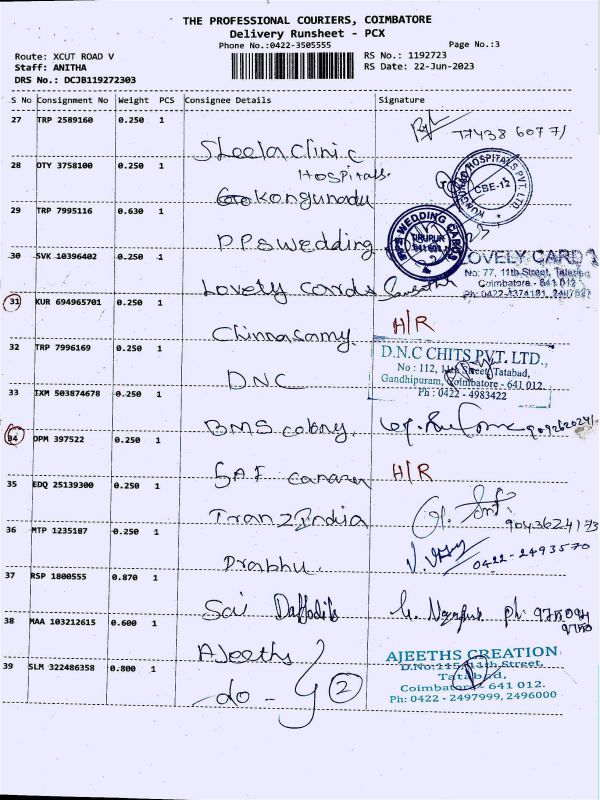 THE PROFESSIONAL COURIERS, COIMBATORE
Delivery Runsheet - PCX
Phone No.:0422-3505555
Page No.:3
Route: XCUT ROAD V
RS No.: 1192723
Staff: ANITHA
RS Date: 22-Jun-2023
DRS No.: DCJB119272303
S No Consignment No Weight PCS Consignee Details Signature
27 TRP 2589160 0.250 1
Sheela clinic
28 OTY 3758100 0.250 1
Hospitals.
Kongunadu
KONGUNAD HOSPITALS PVT. LTD
CBE-12
29 TRP 7995116 0.630 1
P.P.S wedding
PPS WEDDING CARDS
TIRUPUR
30 SVK 10396402 0.250 1
Lovely cards
LOVELY CARDS
No: 77, 11th Street, Tatabad
Coimbatore - 641 012
31 KUR 694965701 0.250 1
Chinnasamy.
H/R
32 TRP 7996169 0.250 1
D.N.C
D.N.C CHITS PVT. LTD.,
No : 112, 11th Street, Tatabad,
Gandhipuram, Coimbatore - 641 012.
Ph : 0422 - 4983422
33 IXM 503874678 0.250 1
BMS colony.
34 OPM 397522 0.250 1
SAF
H/R
35 EDQ 25139300 0.250 1
Tranz India
9043624173
36 MTP 1235187 0.250 1
Prabhu.
0422-2493570
37 RSP 1800555 0.870 1
Sai Daffodils
38 MAA 103212615 0.600 1
Ajeeths
AJEETHS CREATION
D.No:115, 11th Street,
Tatabad,
Coimbatore - 641 012.
Ph: 0422 - 2497999, 2496000
39 SLM 322486358 0.800 1
-do- 2